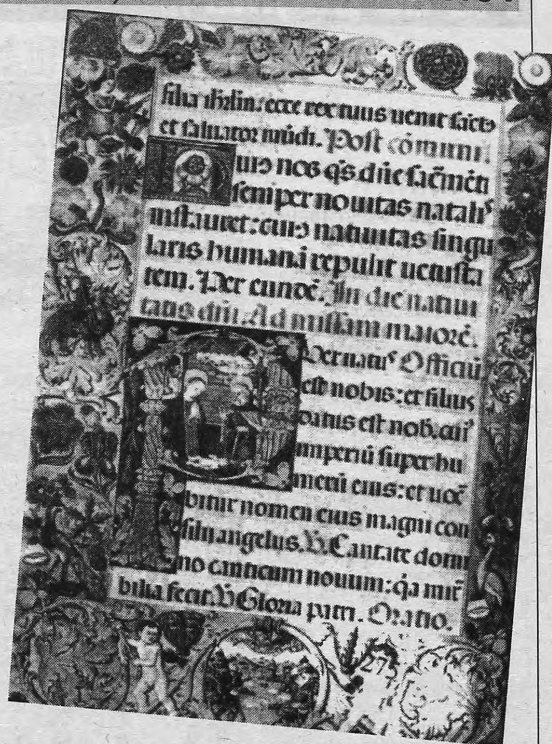 filia ihrlm: ecce rex tuus uenit sāct9
et saluator mūdi. Post cōmuni.
uiꝰ nos q̄s dn̄e sac̄mēti
semper nouitas natalis
instauret: cuiꝰ natiuitas singu
laris humanā repulit uetusta
tem. Per eundē. In die natiui
tatis dn̄i. Ad missam maiorē.
Per natus Officiū
est nobis: et filius
datus est nob. cui9
imperiū super hu
merū eius: et uoc̄
bitur nomen eius magni con
silii angelus. V̄. Cantate domi
no canticum nouum: q̄a mir̄
bilia fecit. V̄ Gloria patri. Oratio.